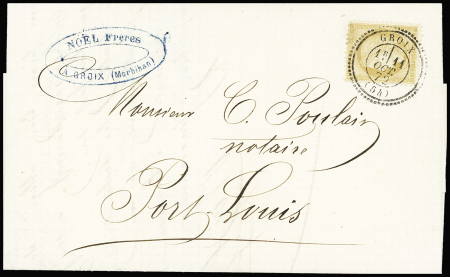 NOEL Frères
A GROIX (Morbihan)
GROIX
1E 11
OCT
72
(54)
Monsieur C. Poulain
notaire
Port Louis